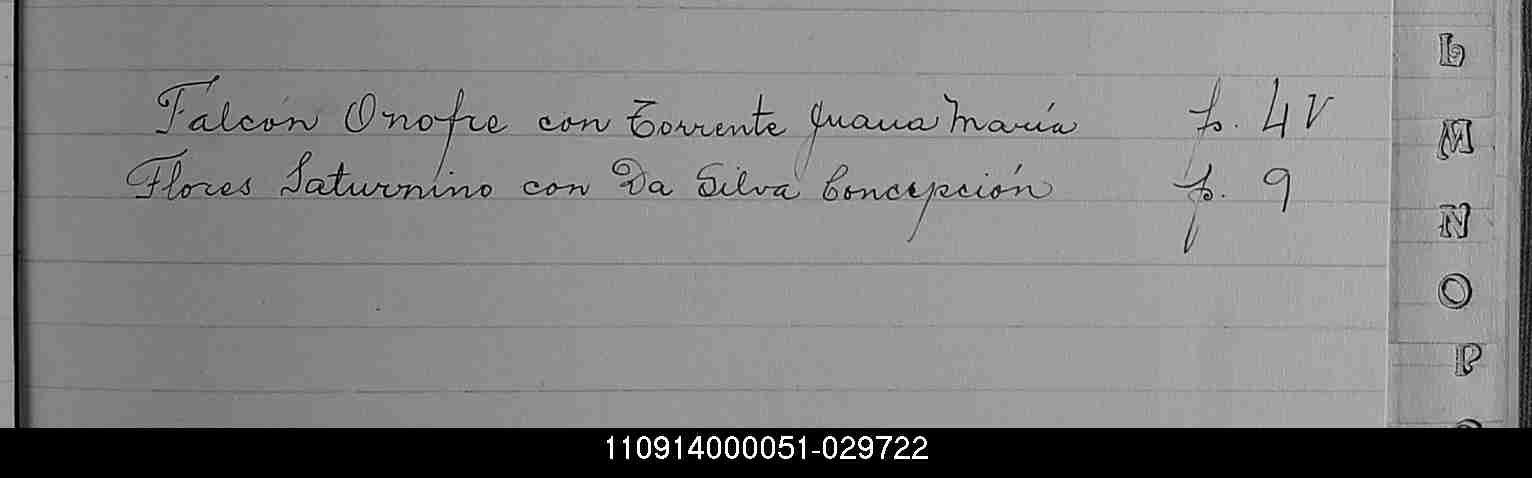 Falcón Onofre con Torrente Juana María f. 4V
Flores Saturnino con Da Silva Concepción f. 9
L
M
N
O
P
110914000051-029722